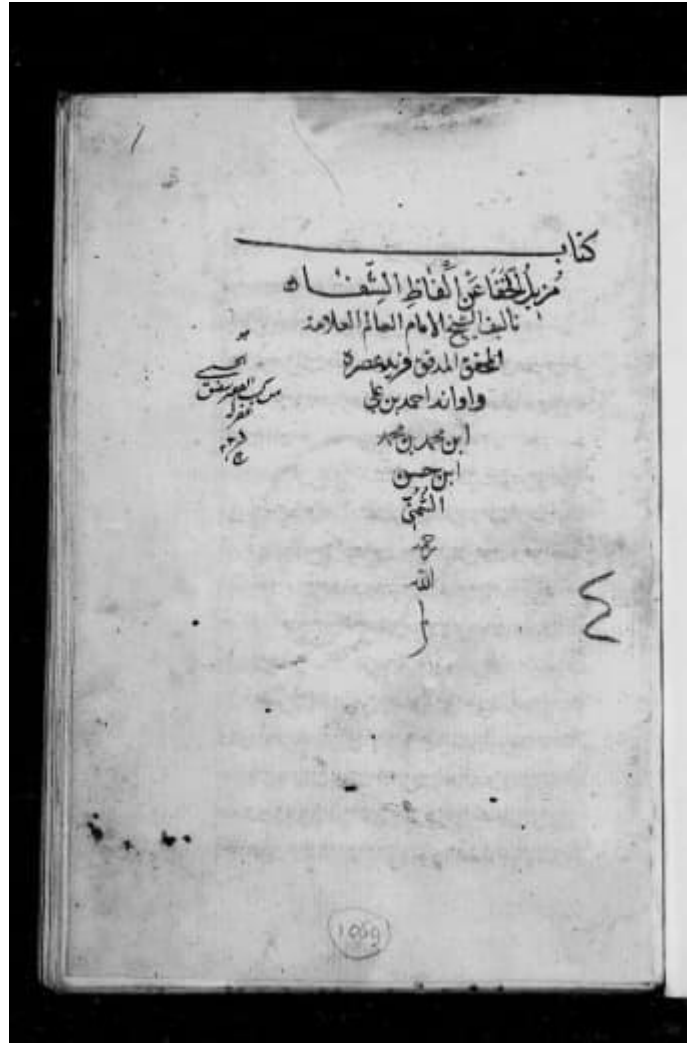 كتاب
مزيل الخفا عن ألفاظ الشفاه
تاليف الشيخ الامام العالم العلامة
المحقق المدقق فريد عصره
واوانه احمد بن علي
ابن محمد بن محمد
ابن حسن
الشُّمُنّي
رحمه
الله
٤
1059